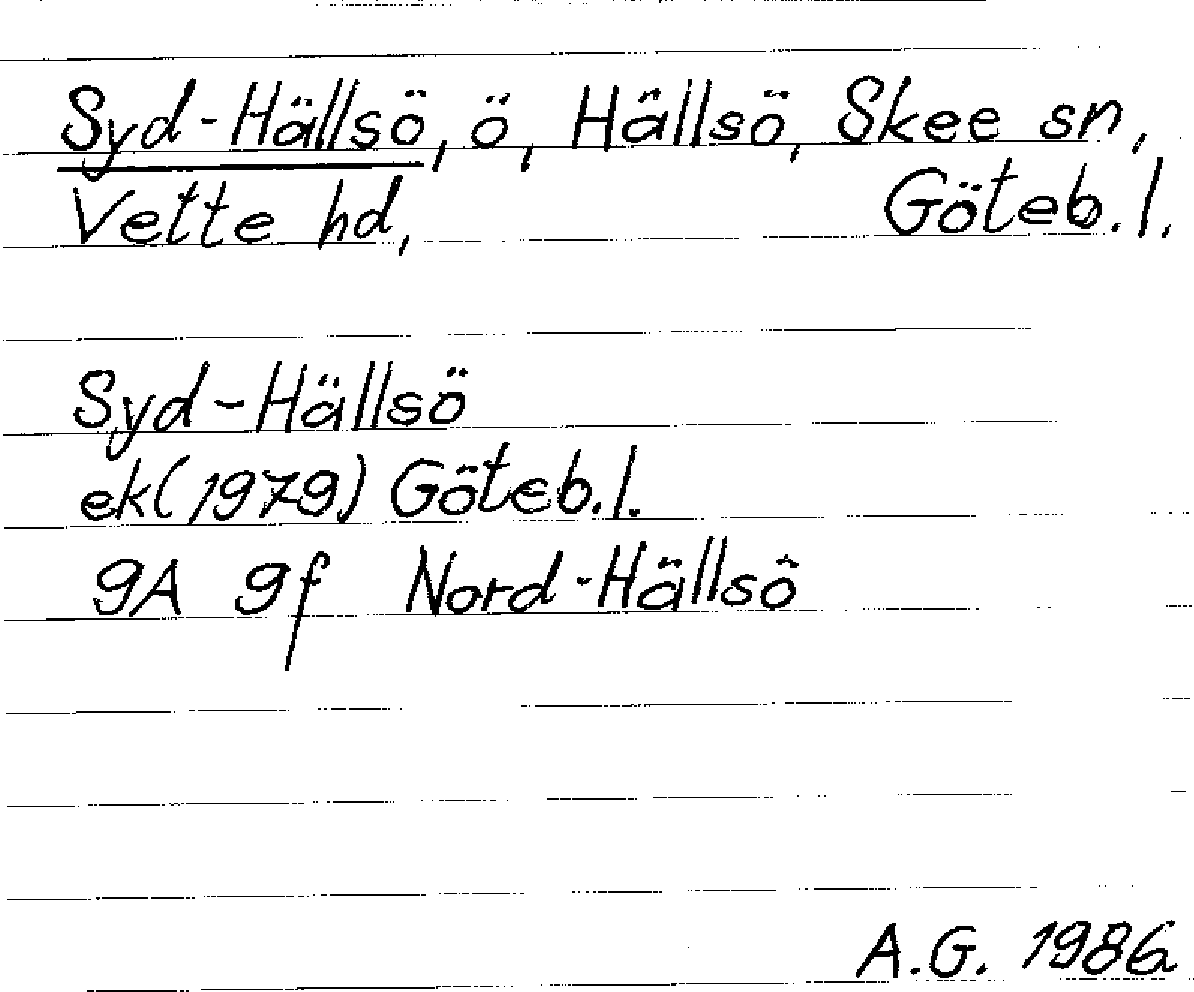 Syd-Hällsö, ö, Hällsö, Skee sn,
Vette hd, Göteb.l.
Syd-Hällsö
ek(1979) Göteb.l.
9A 9f Nord-Hällsö
A.G. 1986